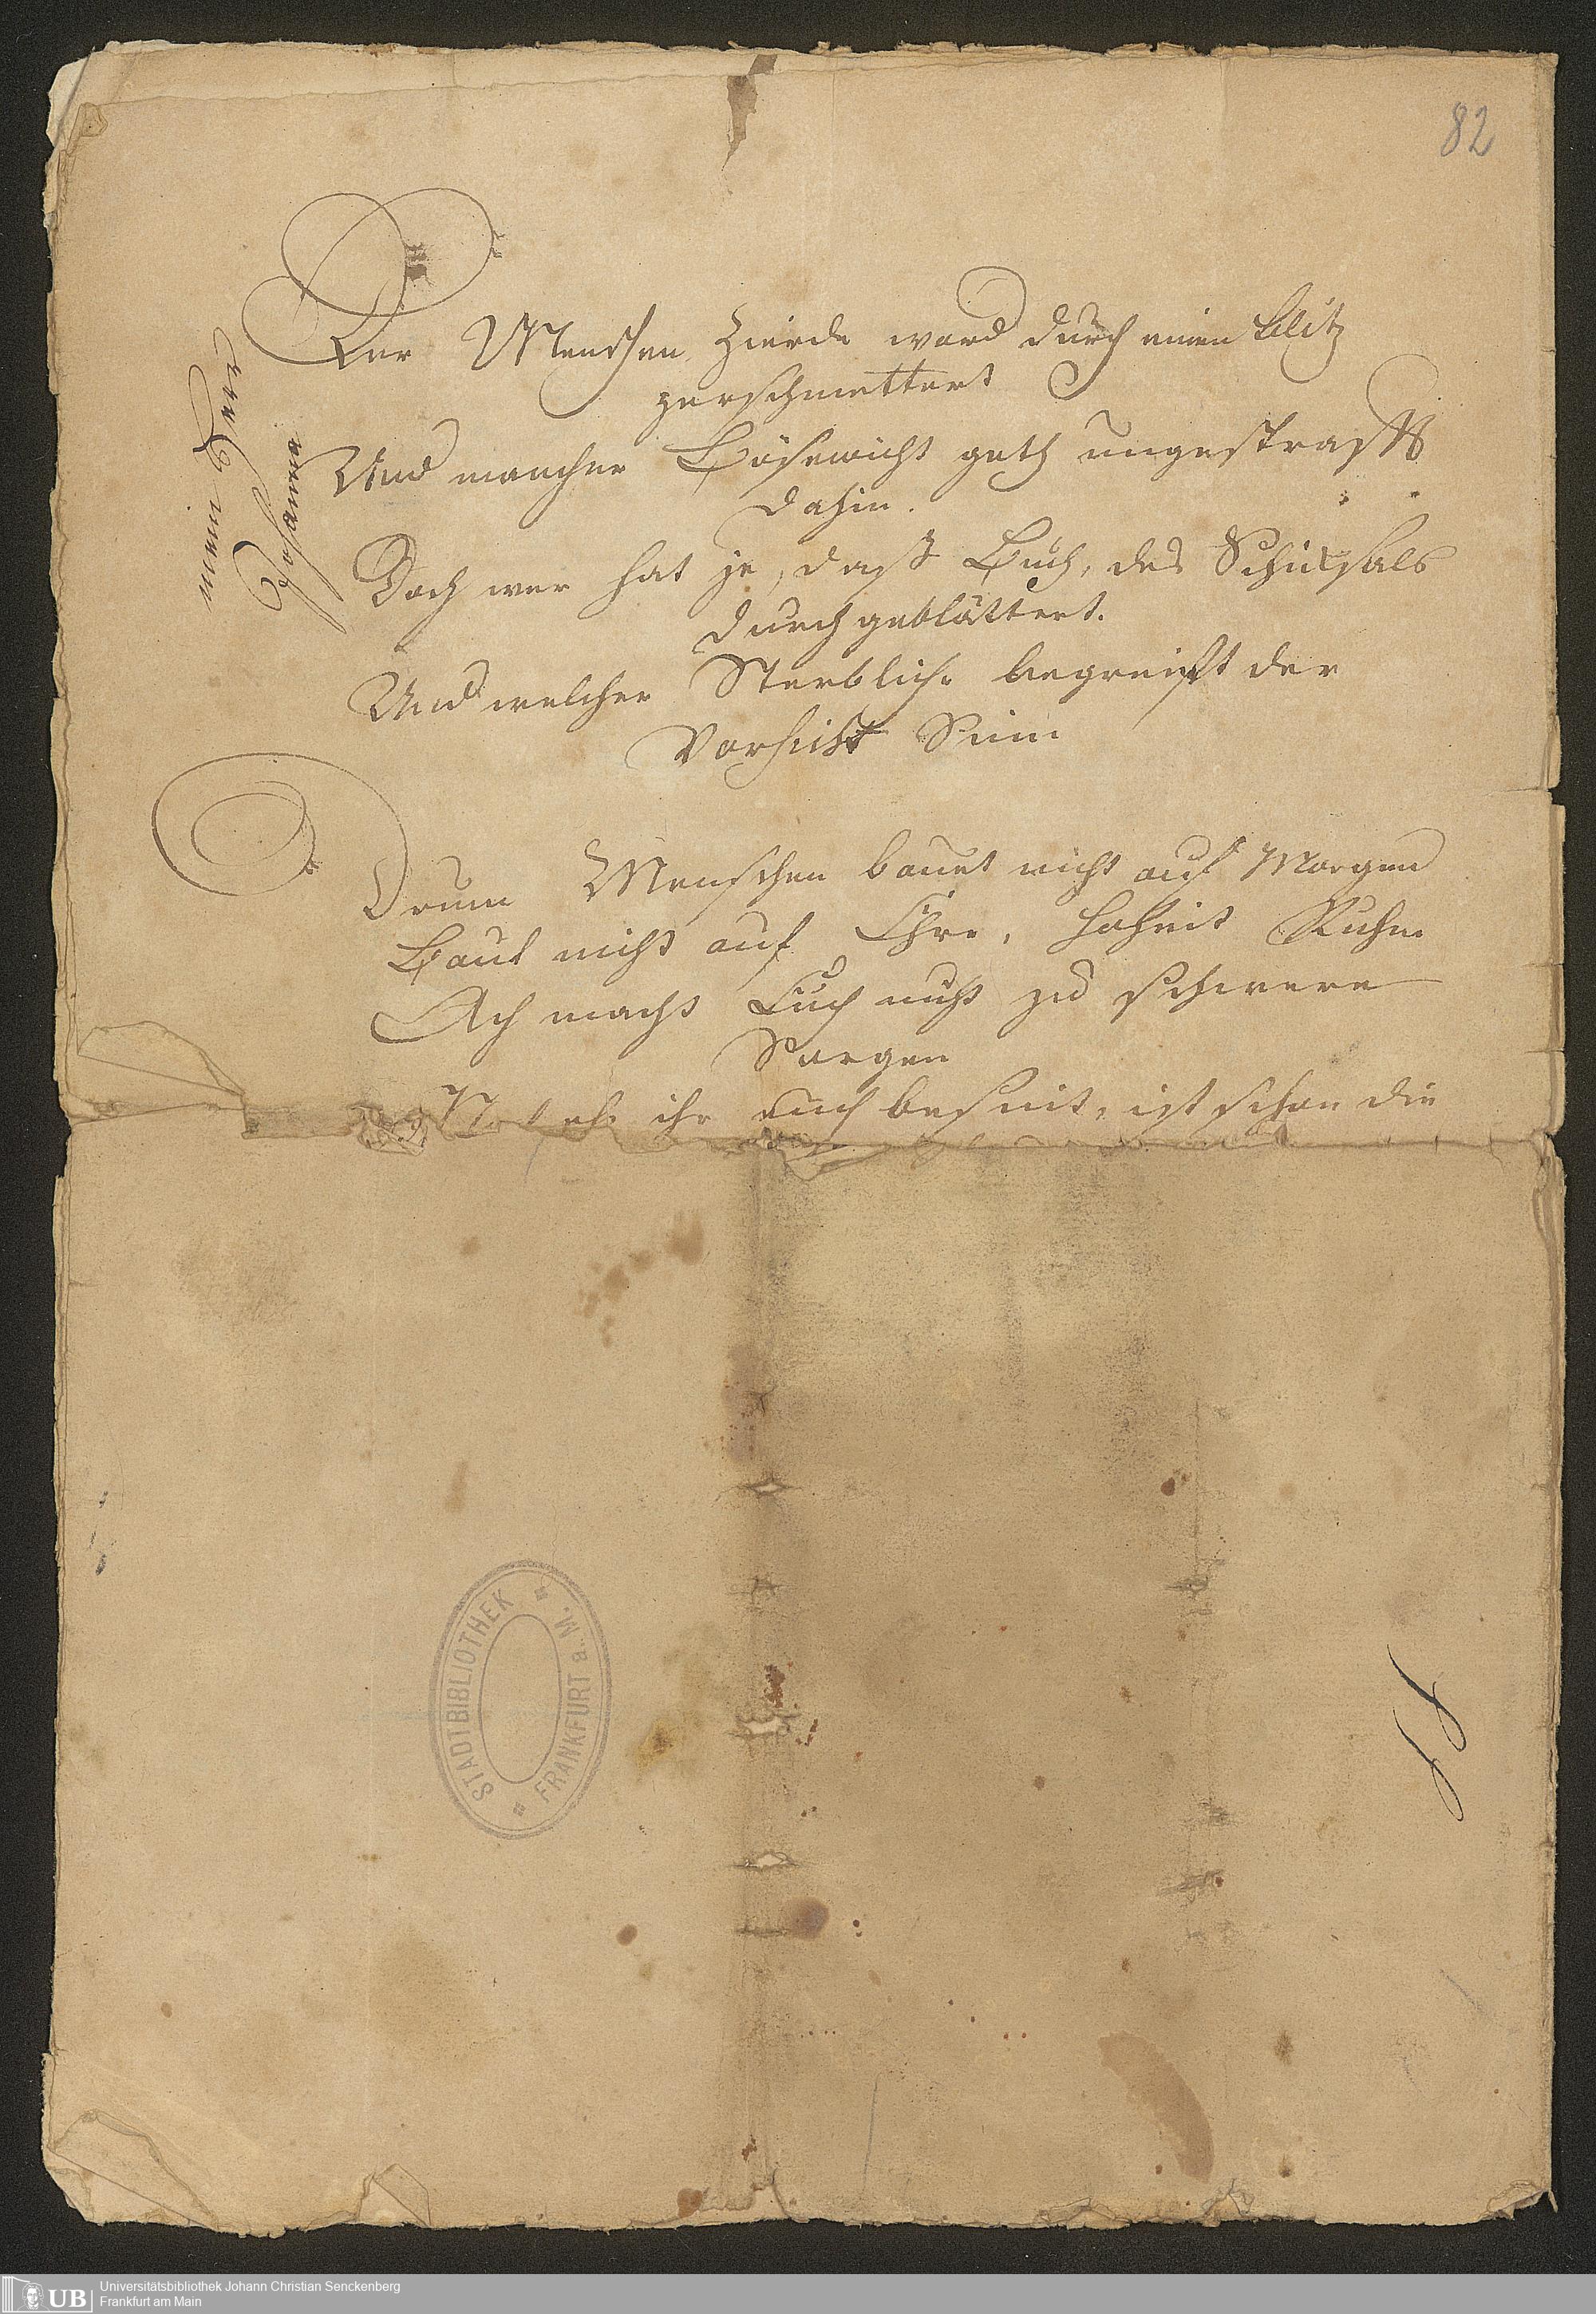 82
Der Menschen Zierde ward durch einen Blitz
zerschmettert
Und mancher Bösewicht geth ungestraft
dahin.
Doch wer hat je, daß Buch, des Schiksals
durchgeblättert.
Und welcher Sterbliche begreift der
Vorsicht Sinn
Drum Menschen bauet nicht auf Morgen
Baut nicht auf Ehre, Hoheit Ruhm
Ach macht Euch nicht zu schwere
Sorgen
ehe ihr euch besint, ist schon die
mein Herr
Johann
STADTBIBLIOTHEK
FRANKFURT a. M.
UB
Universitätsbibliothek Johann Christian Senckenberg
Frankfurt am Main